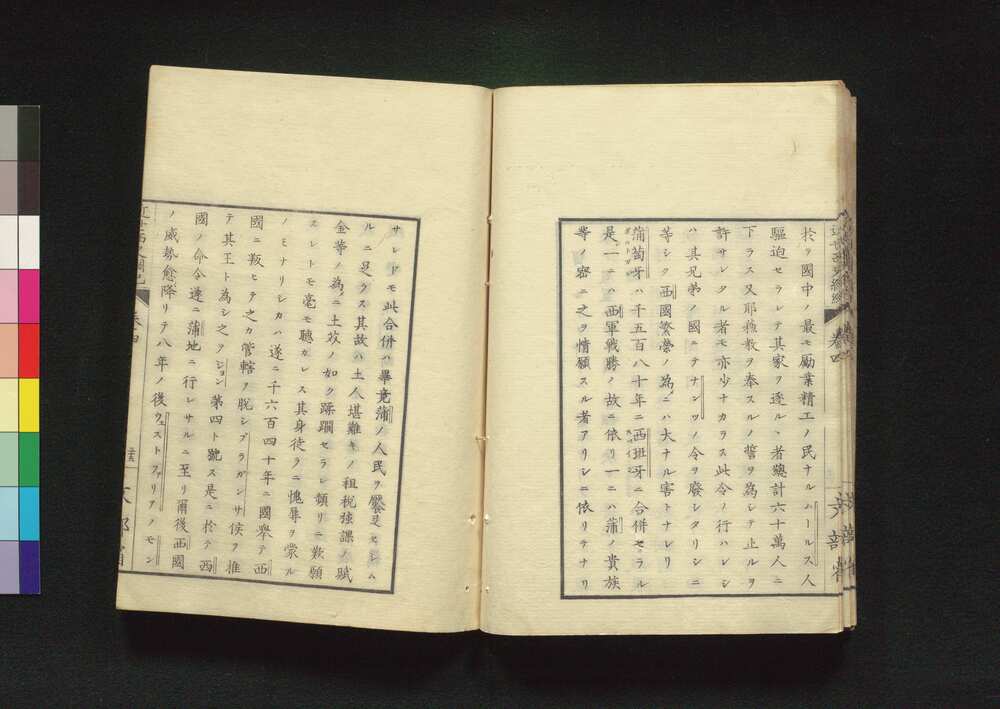 於テ國中ノ最モ勵業精工ノ民ナルハールス人
驅迫セラレテ其家ヲ逐ル丶者總計六十萬人ニ
下ラス又耶穌教ヲ奉スルノ誓ヲ為シテ止ルヲ
許サレタル者モ亦少ナカラス此令ノ行ハレシ
ハ其兄弟ノ國ニテナンツノ令ヲ廢シタリシニ
等シク西國繁榮ノ為ニハ大ナル害トナレリ
蒲萄牙ハ千五百八十年ニ西班牙ニ合併セラル
是一ハ西軍戰勝ノ故ニ依リ一ニハ蒲ノ貴族
等ノ密ニ之ヲ情願スル者アリシニ依リテナリ
近世西史綱紀 卷四
文部省
サレトモ此合併ハ畢竟蒲ノ人民ヲ饜足セシム
ルニ足ラス其故ハ土人堪難キノ租税強課ノ賦
金等ノ為ニ土芥ノ如ク蹂躙セラレ頻リニ歎願
スレトモ毫モ聽カレス其身徒ラニ愧辱ヲ蒙ル
ノミナリシカハ遂ニ千六百四十年ニ國擧テ西
國ニ叛ヒテ之カ管轄ヲ脱シブラガンサ侯ヲ推
テ其王ト為シ之ヲジョン第四ト號ス是ニ於テ西
國ノ命令遂ニ蒲地ニ行レサルニ至リ爾後西國
ノ威勢愈降リテ八年ノ後ウェストファリアノモン
近世西史綱紀 卷四
文部省